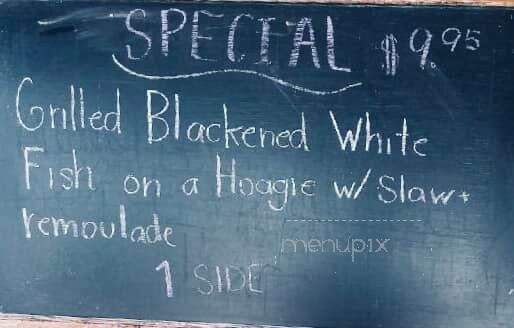 SPECIAL $9.95
Grilled Blackened White
Fish on a Hoagie w/ Slaw +
remoulade
menupix
1 SIDE